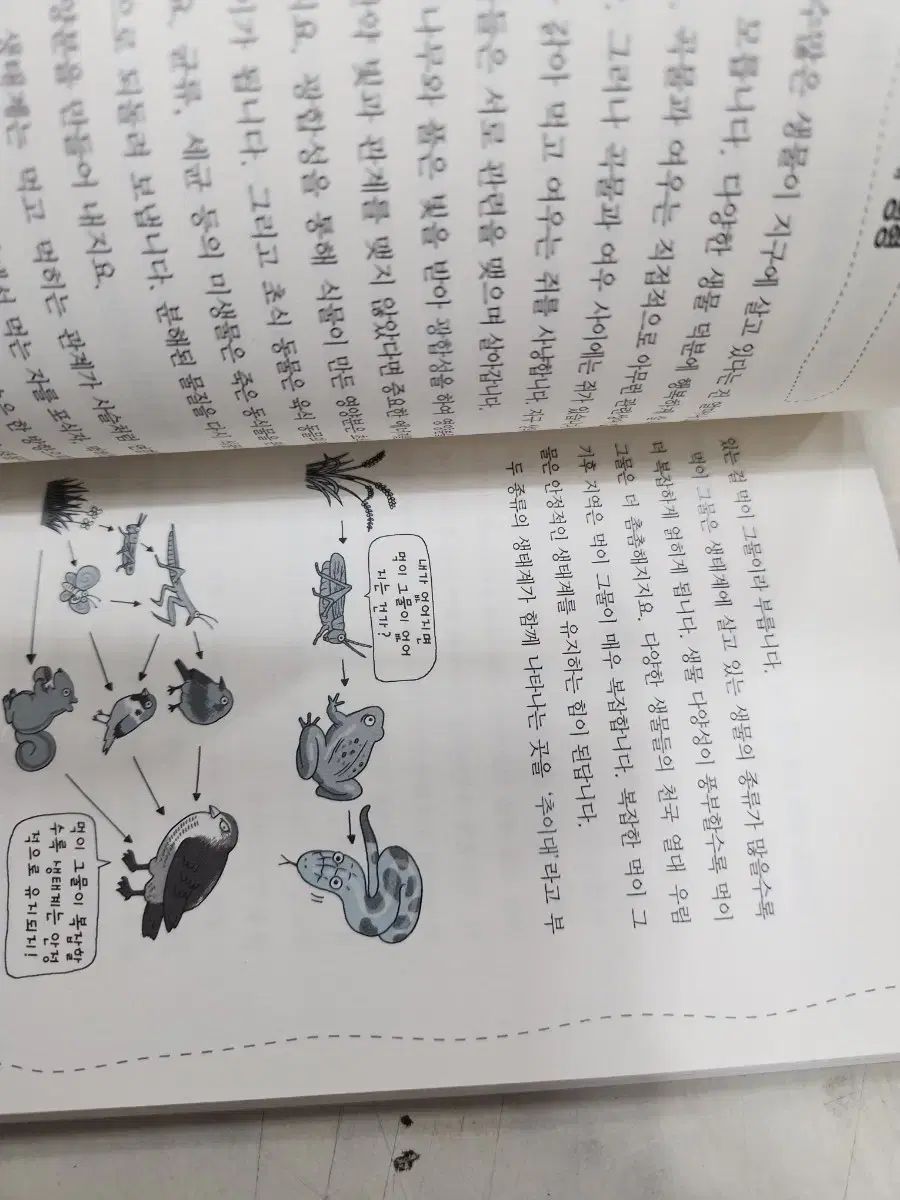 수많은 생물이 지구에 살고 있다는 것
모릅니다. 다양한 생물 덕분에 행복하
곡물과 여우는 직접적으로 아무런 관련
그러나 곡물과 여우 사이에는 쥐가 있습니
갉아 먹고 여우는 쥐를 사냥합니다. 지구
들은 서로 관련을 맺으며 살아갑니다.
나무와 풀은 빛을 받아 광합성을 하여 영양분
약 빛과 관계를 맺지 않았다면 중요한 에너
요. 광합성을 통해 식물이 만든 영양분은 초
이가 됩니다. 그리고 초식 동물은 육식 동물
요. 균류, 세균 등의 미생물은 죽은 동식물을
으로 되돌려 보냅니다. 분해된 물질을 다시
양분을 만들어 내지요.
생태계는 먹고 먹히는 관계가 사슬처럼
먹는 자를 표시자
있는 걸 먹이 그물이라 부릅니다.
먹이 그물은 생태계에 살고 있는 생물의 종류가 많을수록
더 복잡하게 얽히게 됩니다. 생물 다양성이 풍부할수록 먹이
그물은 더 촘촘해지지요. 다양한 생물들의 천국 열대 우림
기후 지역은 먹이 그물이 매우 복잡합니다. 복잡한 먹이 그
물은 안정적인 생태계를 유지하는 힘이 된답니다.
두 종류의 생태계가 함께 나타나는 곳을 '추이대'라고 부
내가 없어지면
먹이 그물이 없어
지는 건가?
먹이 그물이 복잡할
수록 생태계는 안정
적으로 유지되지!